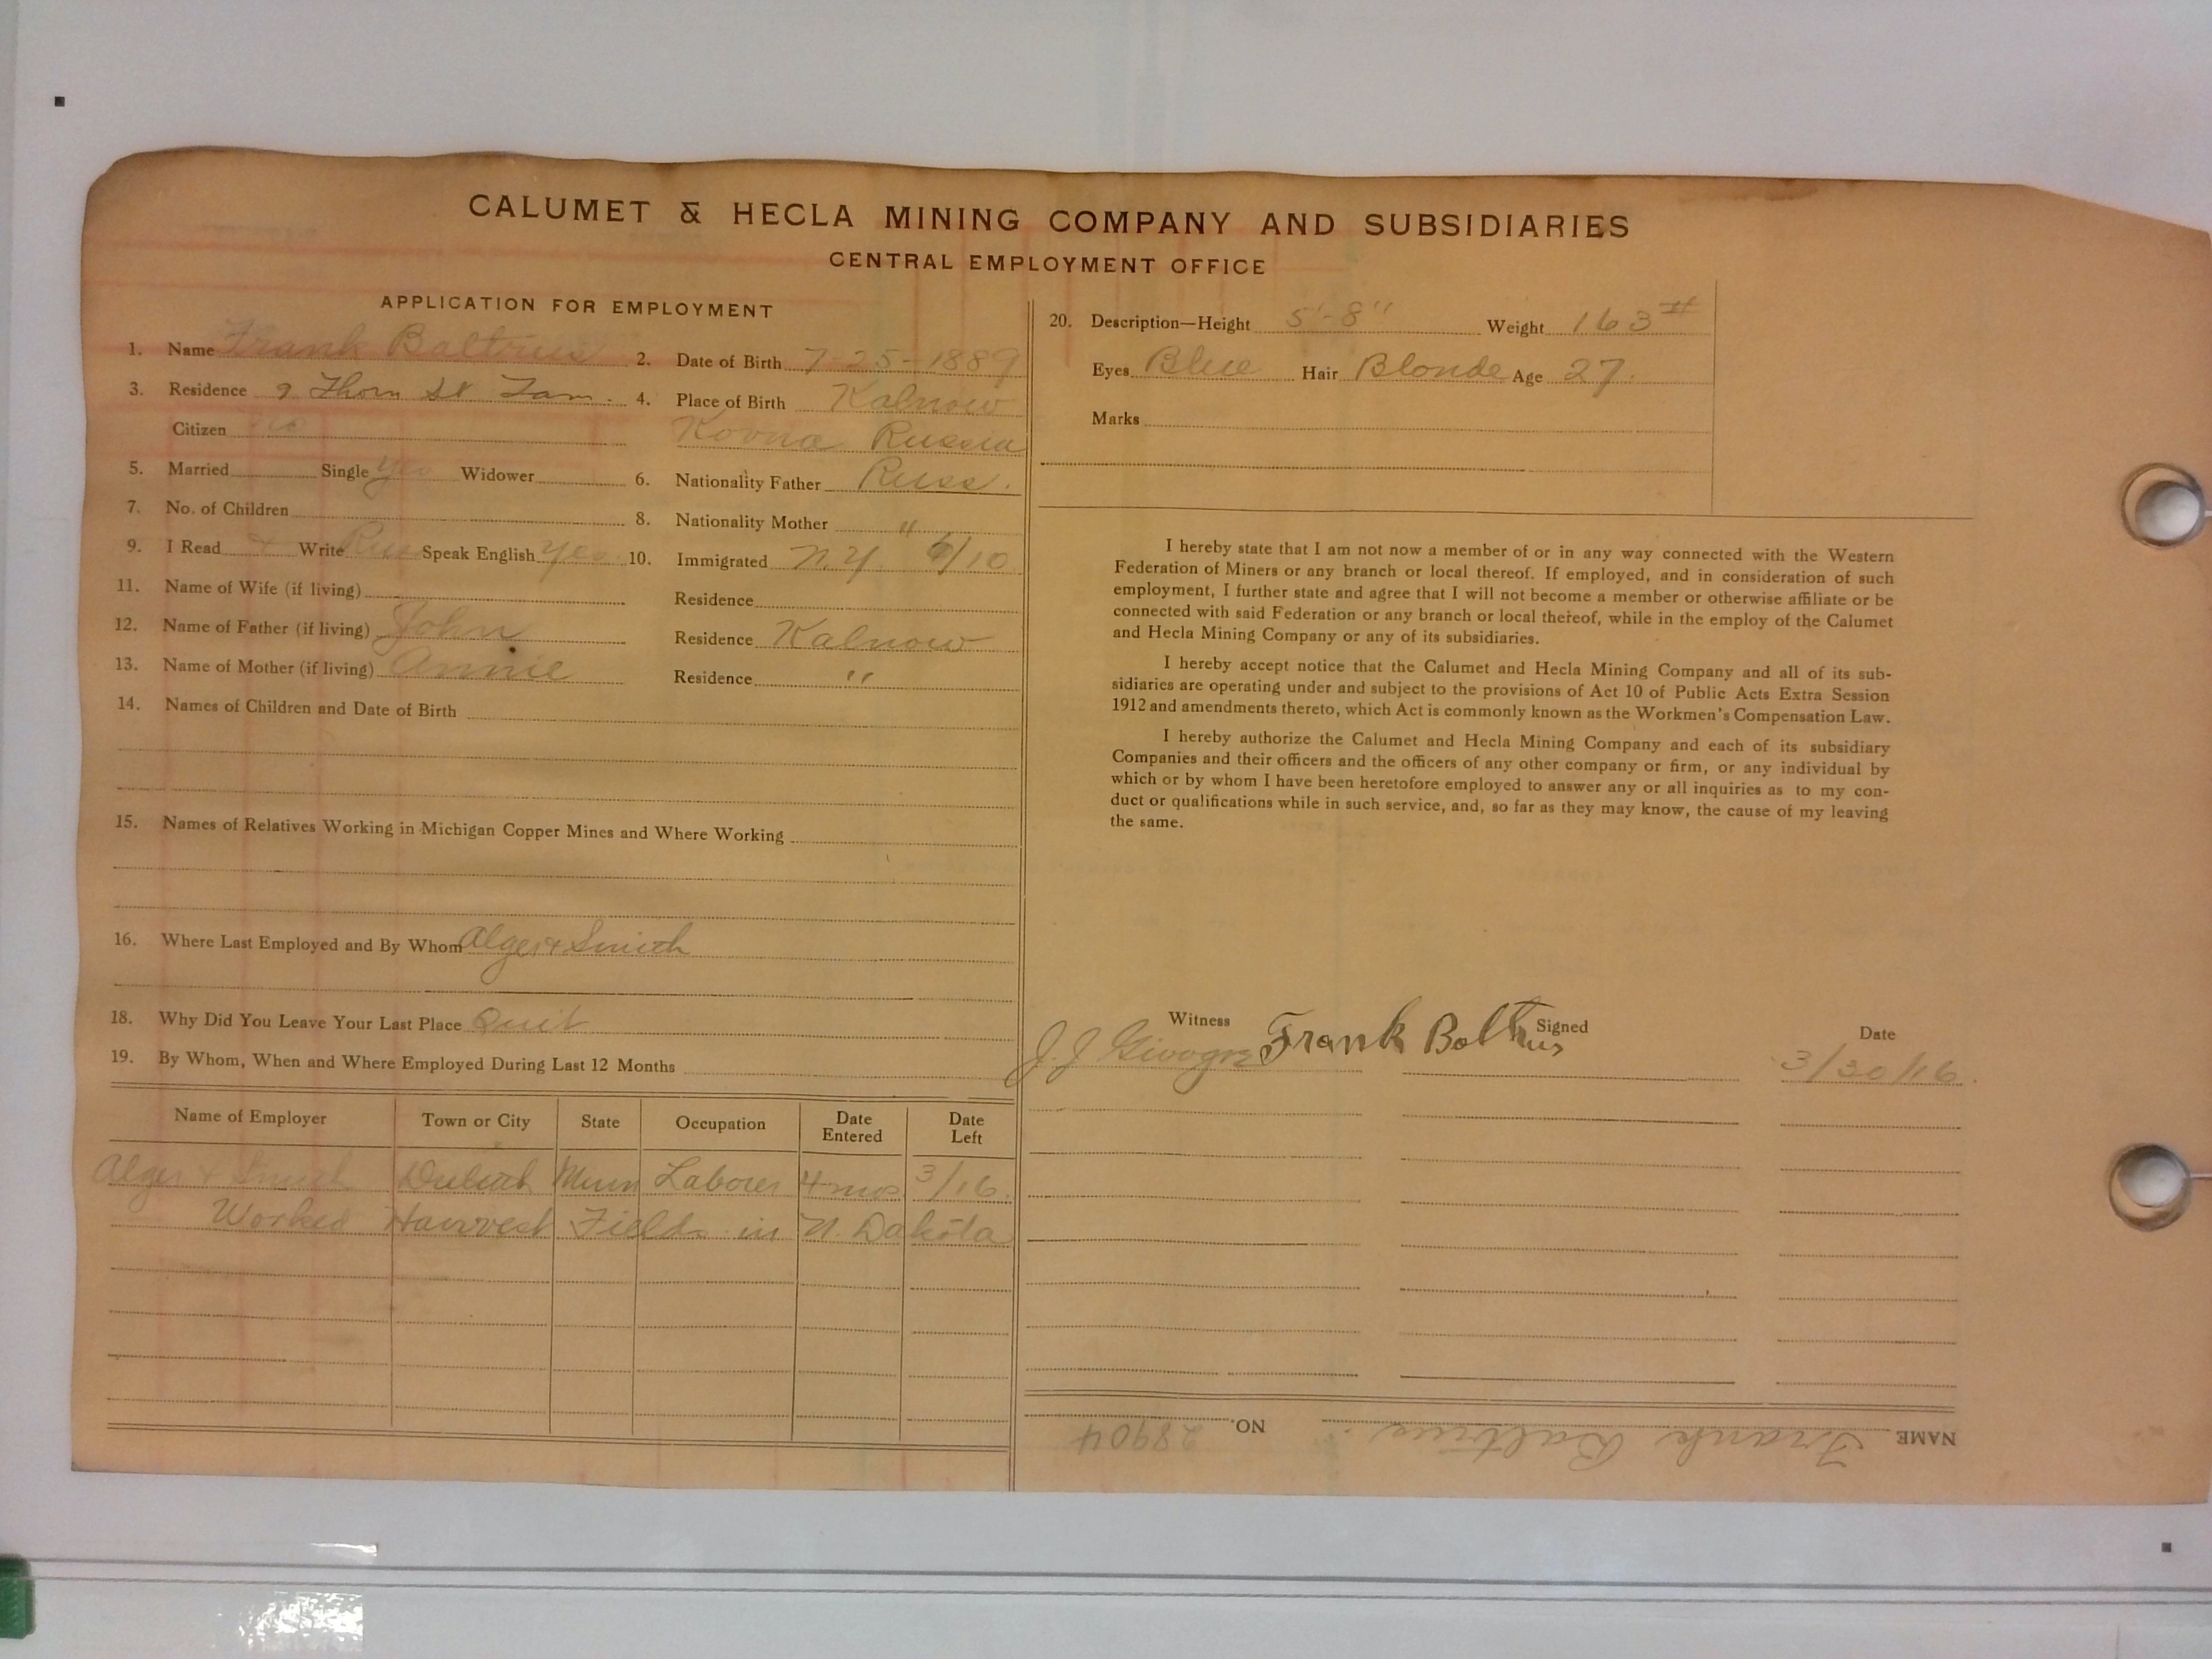 CALUMET & HECLA MINING COMPANY AND SUBSIDIARIES
CENTRAL EMPLOYMENT OFFICE
APPLICATION FOR EMPLOYMENT
1. Name Frank Baltrus 2. Date of Birth 7-25-1889
3. Residence 9 Thorn St Tam. 4. Place of Birth Kalnow
Citizen no Kovna Russia
5. Married Single yes Widower 6. Nationality Father Russ.
7. No. of Children 8. Nationality Mother "
9. I Read + Write Russ Speak English yes 10. Immigrated N.Y. 6/10
11. Name of Wife (if living) Residence
12. Name of Father (if living) John Residence Kalnow
13. Name of Mother (if living) Annie Residence "
14. Names of Children and Date of Birth
15. Names of Relatives Working in Michigan Copper Mines and Where Working
16. Where Last Employed and By Whom Alger & Smith
18. Why Did You Leave Your Last Place Quit
19. By Whom, When and Where Employed During Last 12 Months
Name of Employer Town or City State Occupation Date Entered Date Left
Alger & Smith Duluth Minn Laborer 4 mos 3/16.
Worked Harvest Fields in N. Dakota
20. Description—Height 5'-8" Weight 163#
Eyes Blue Hair Blonde Age 27.
Marks
I hereby state that I am not now a member of or in any way connected with the Western
Federation of Miners or any branch or local thereof. If employed, and in consideration of such
employment, I further state and agree that I will not become a member or otherwise affiliate or be
connected with said Federation or any branch or local thereof, while in the employ of the Calumet
and Hecla Mining Company or any of its subsidiaries.
I hereby accept notice that the Calumet and Hecla Mining Company and all of its sub-
sidiaries are operating under and subject to the provisions of Act 10 of Public Acts Extra Session
1912 and amendments thereto, which Act is commonly known as the Workmen's Compensation Law.
I hereby authorize the Calumet and Hecla Mining Company and each of its subsidiary
Companies and their officers and the officers of any other company or firm, or any individual by
which or by whom I have been heretofore employed to answer any or all inquiries as to my con-
duct or qualifications while in such service, and, so far as they may know, the cause of my leaving
the same.
Witness Signed Date
J. J. Frank Boltrus 3/30/16.
NAME Frank Baltrus. NO. 28904